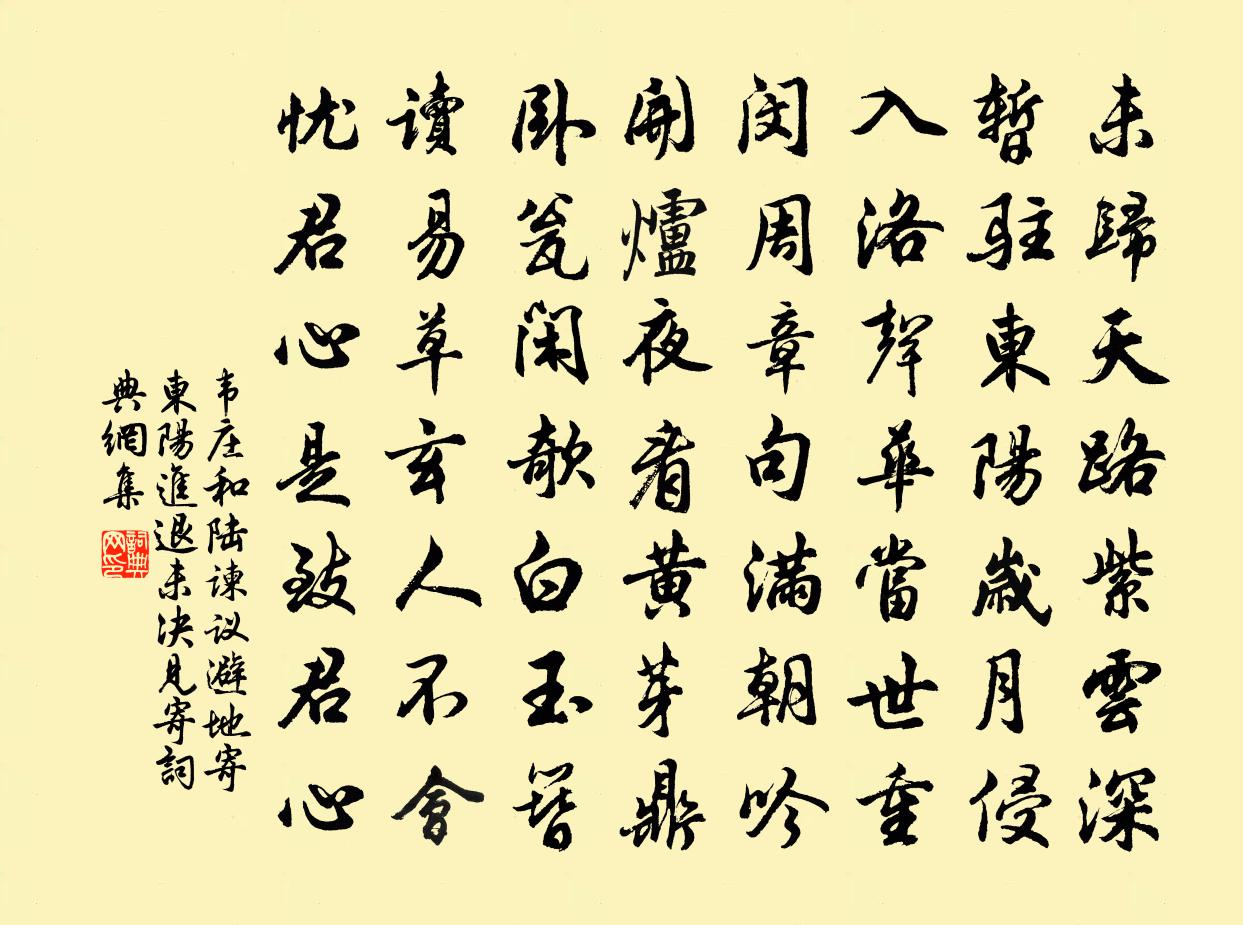 未歸天路紫雲深
暫駐東陽歲月侵
入洛聲華當世重
闵周章句滿朝吟
開爐夜看黃芽鼎
卧瓮閑欹白玉簪
讀易草玄人不會
忧君心是致君心
韦庄和陆谏议避地寄
東陽進退未决見寄詞
典網集
詞典网印